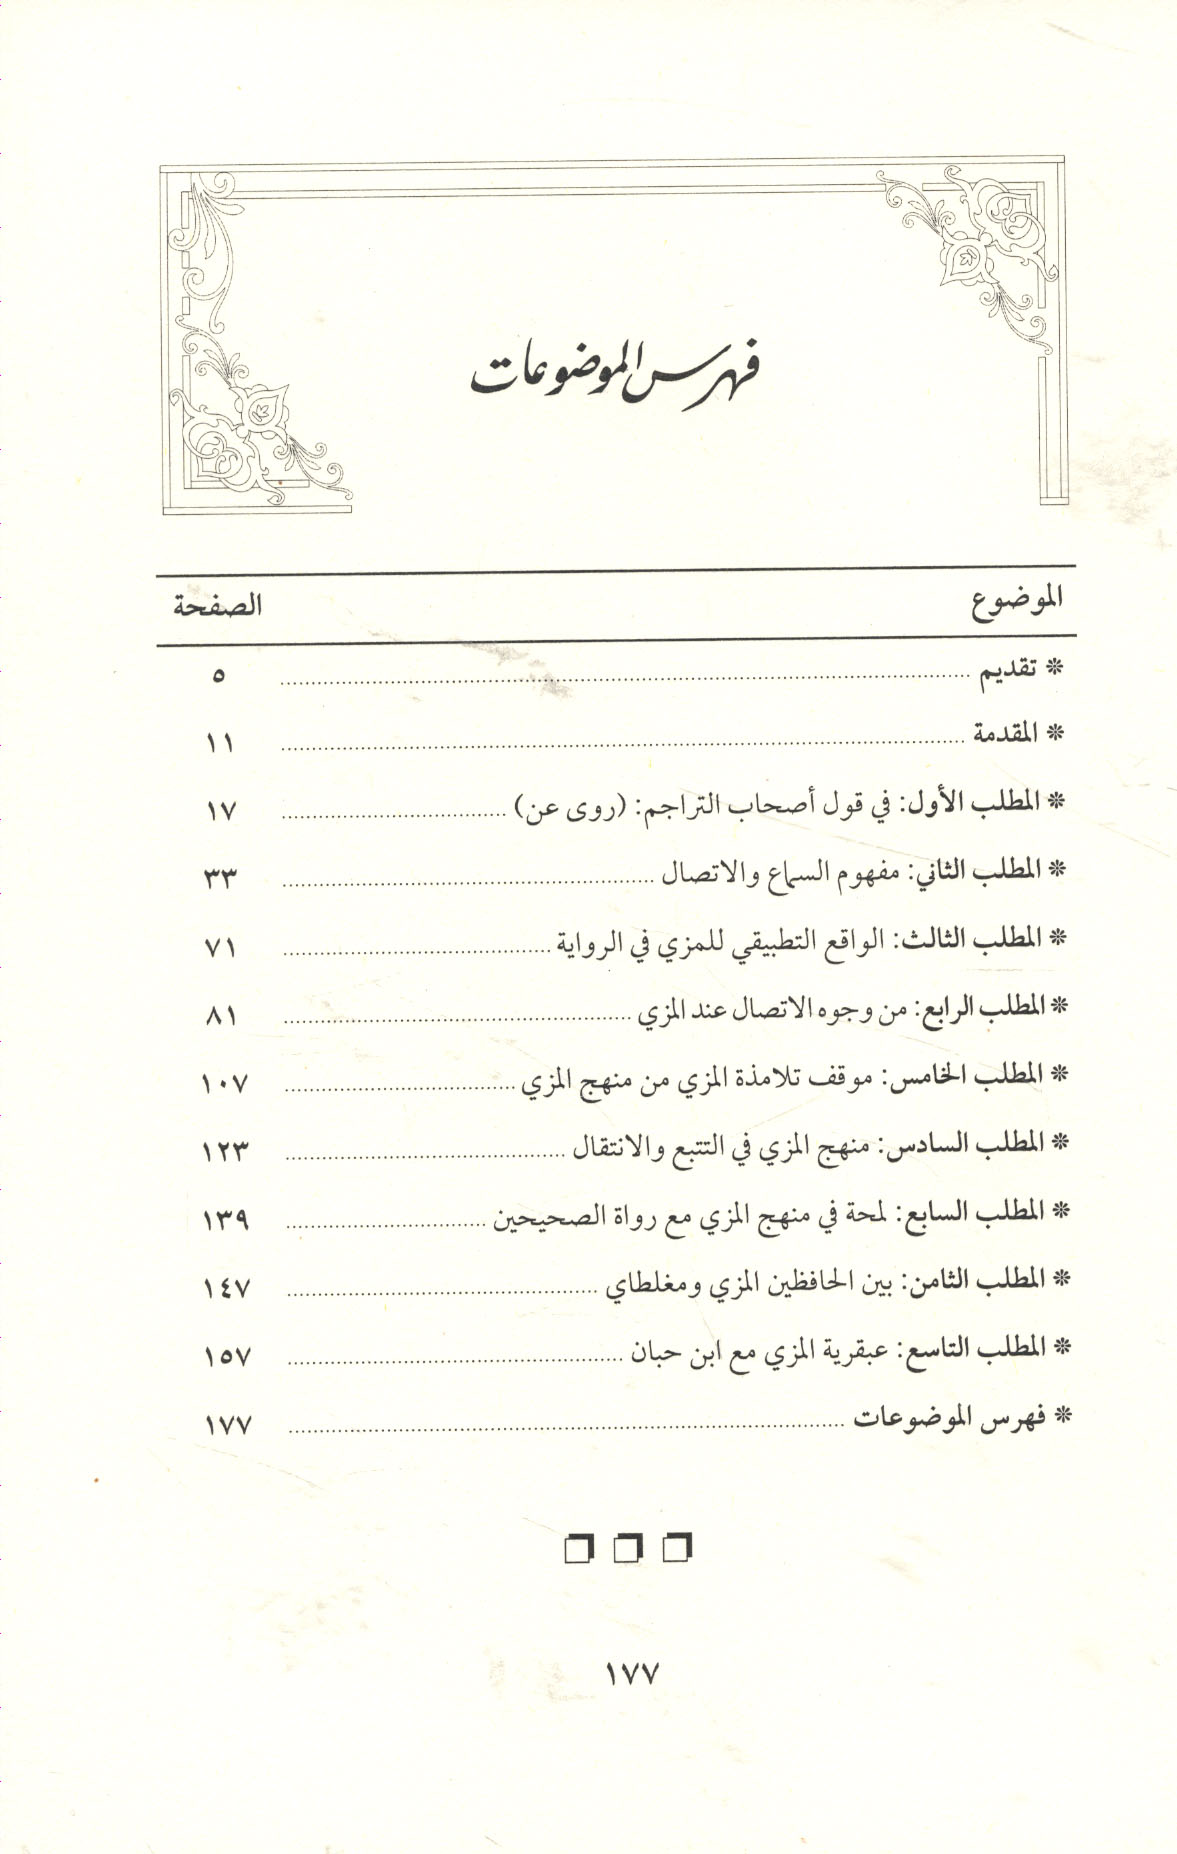 فهرس الموضوعات
الموضوع الصفحة
* تقديم ................ ٥
* المقدمة ................ ١١
* المطلب الأول: في قول أصحاب التراجم: (روى عن) ................ ١٧
* المطلب الثاني: مفهوم السماع والاتصال ................ ٣٣
* المطلب الثالث: الواقع التطبيقي للمزي في الرواية ................ ٧١
* المطلب الرابع: من وجوه الاتصال عند المزي ................ ٨١
* المطلب الخامس: موقف تلامذة المزي من منهج المزي ................ ١٠٧
* المطلب السادس: منهج المزي في التتبع والانتقال ................ ١٢٣
* المطلب السابع: لمحة في منهج المزي مع رواة الصحيحين ................ ١٣٩
* المطلب الثامن: بين الحافظين المزي ومغلطاي ................ ١٤٧
* المطلب التاسع: عبقرية المزي مع ابن حبان ................ ١٥٧
* فهرس الموضوعات ................ ١٧٧
١٧٧